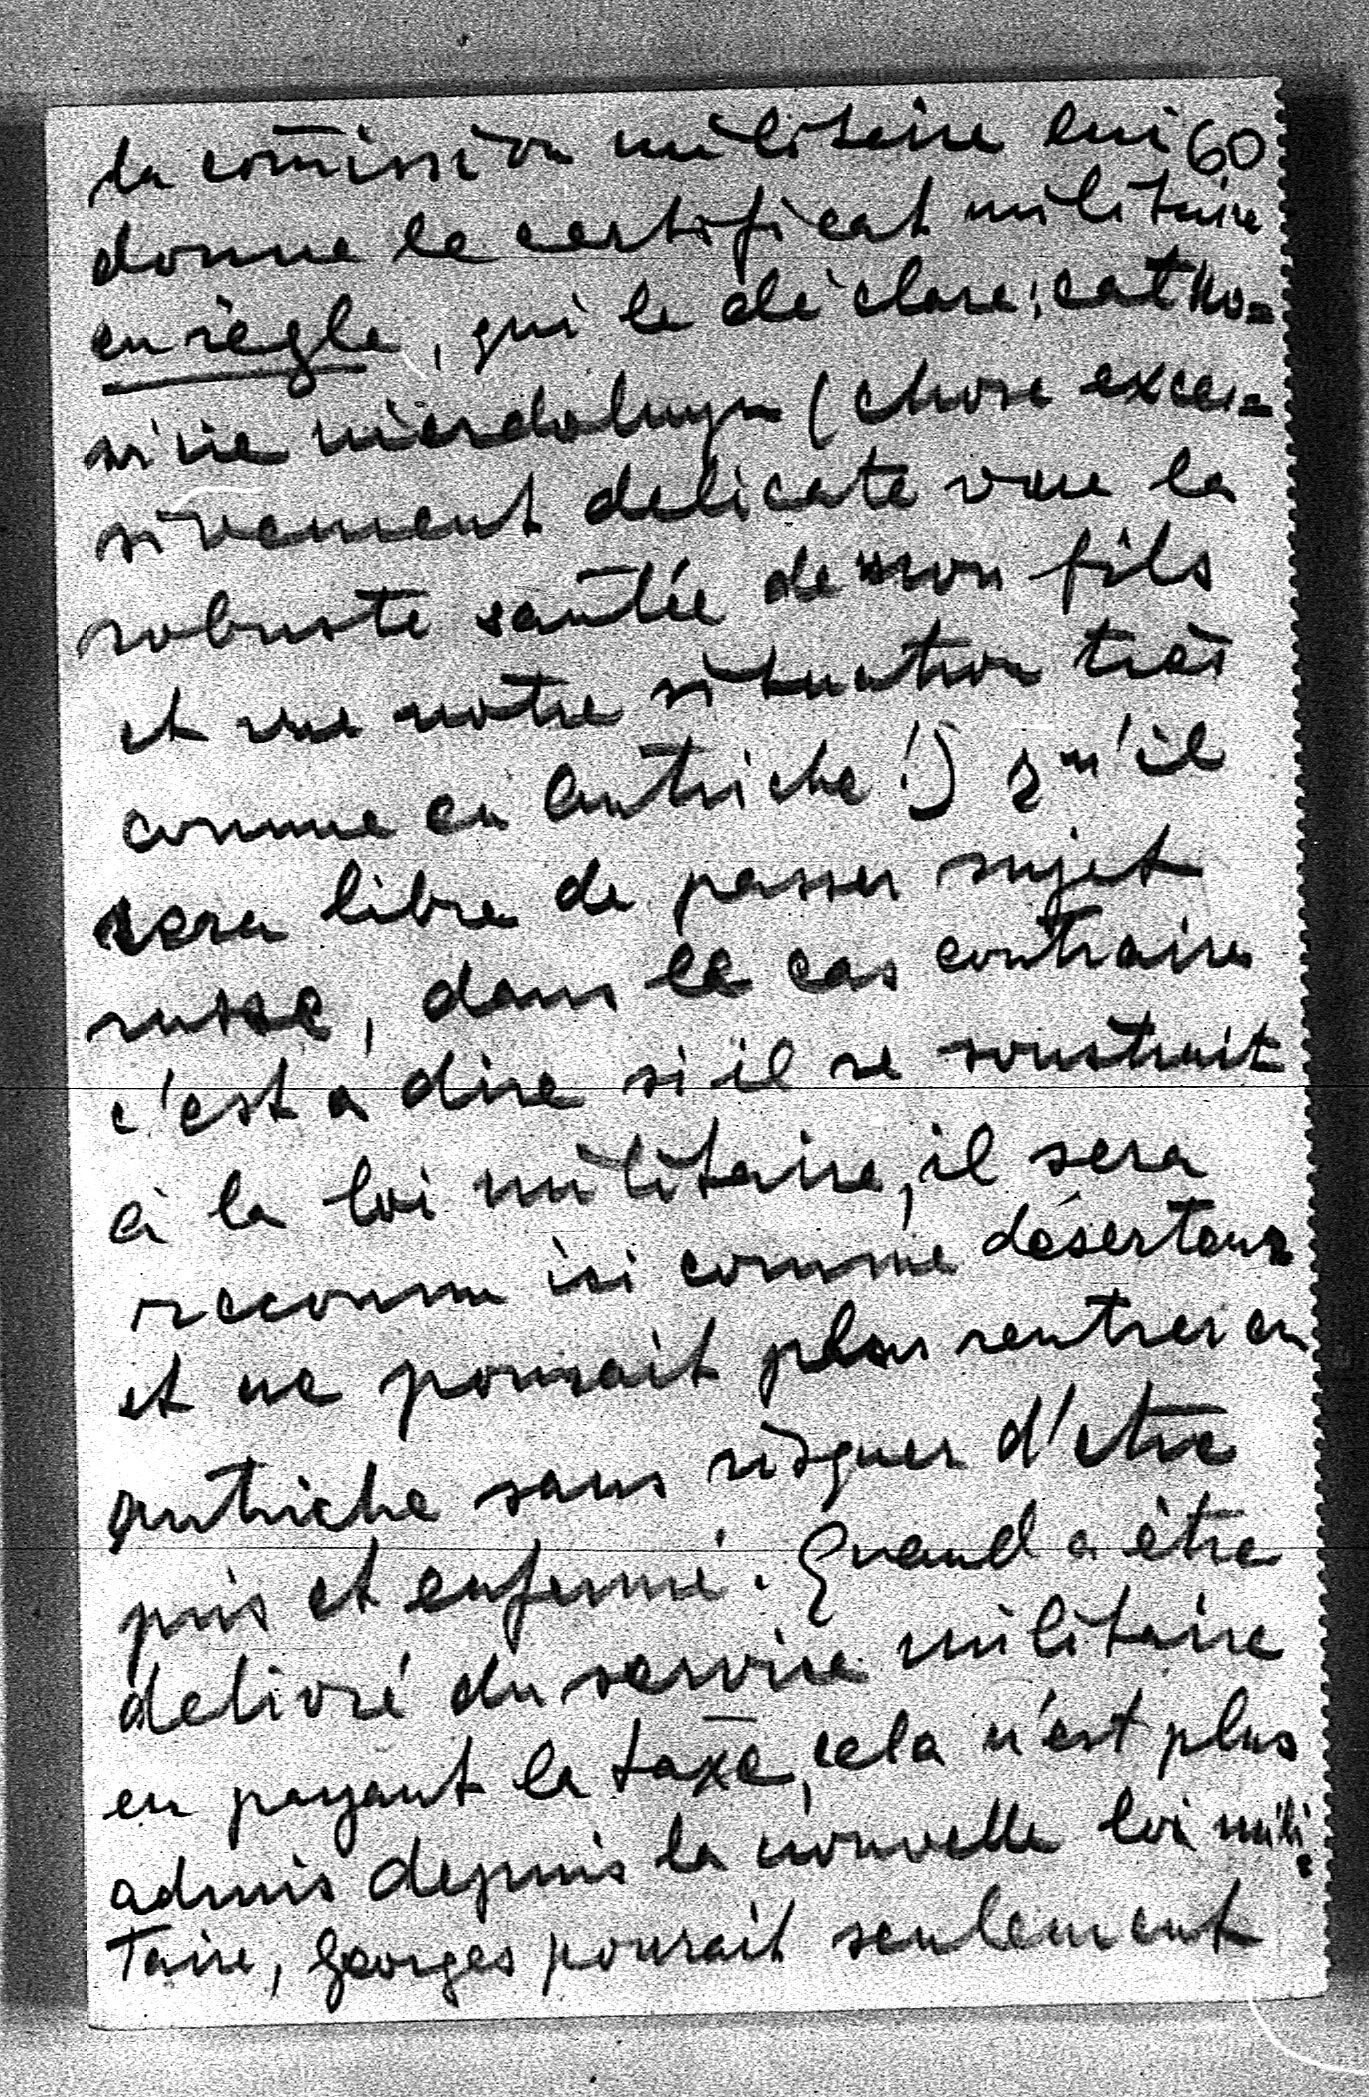 la com̄ission militaire lui 60
donne le certificat militaire
en règle, qui le déclare, cat
(chose exces=
sivement delicate vue la
robuste santée de mon fils
et vue notre situation très
connue en Autriche!) qu'il
sera libre de passer sujet
russe, dans le cas contraire
c'est à dire si il se soustrait
à la loi militaire, il sera
reconnu ici comme déserteur
et ne pourait plus rentrer en
autriche sans risquer d'etre
pris et enfermé. Quand a être
delivré du service militaire
en payant la taxe, cela n'est plus
admis depuis la nouvelle loi mili=
taire, Georges pourait seulement